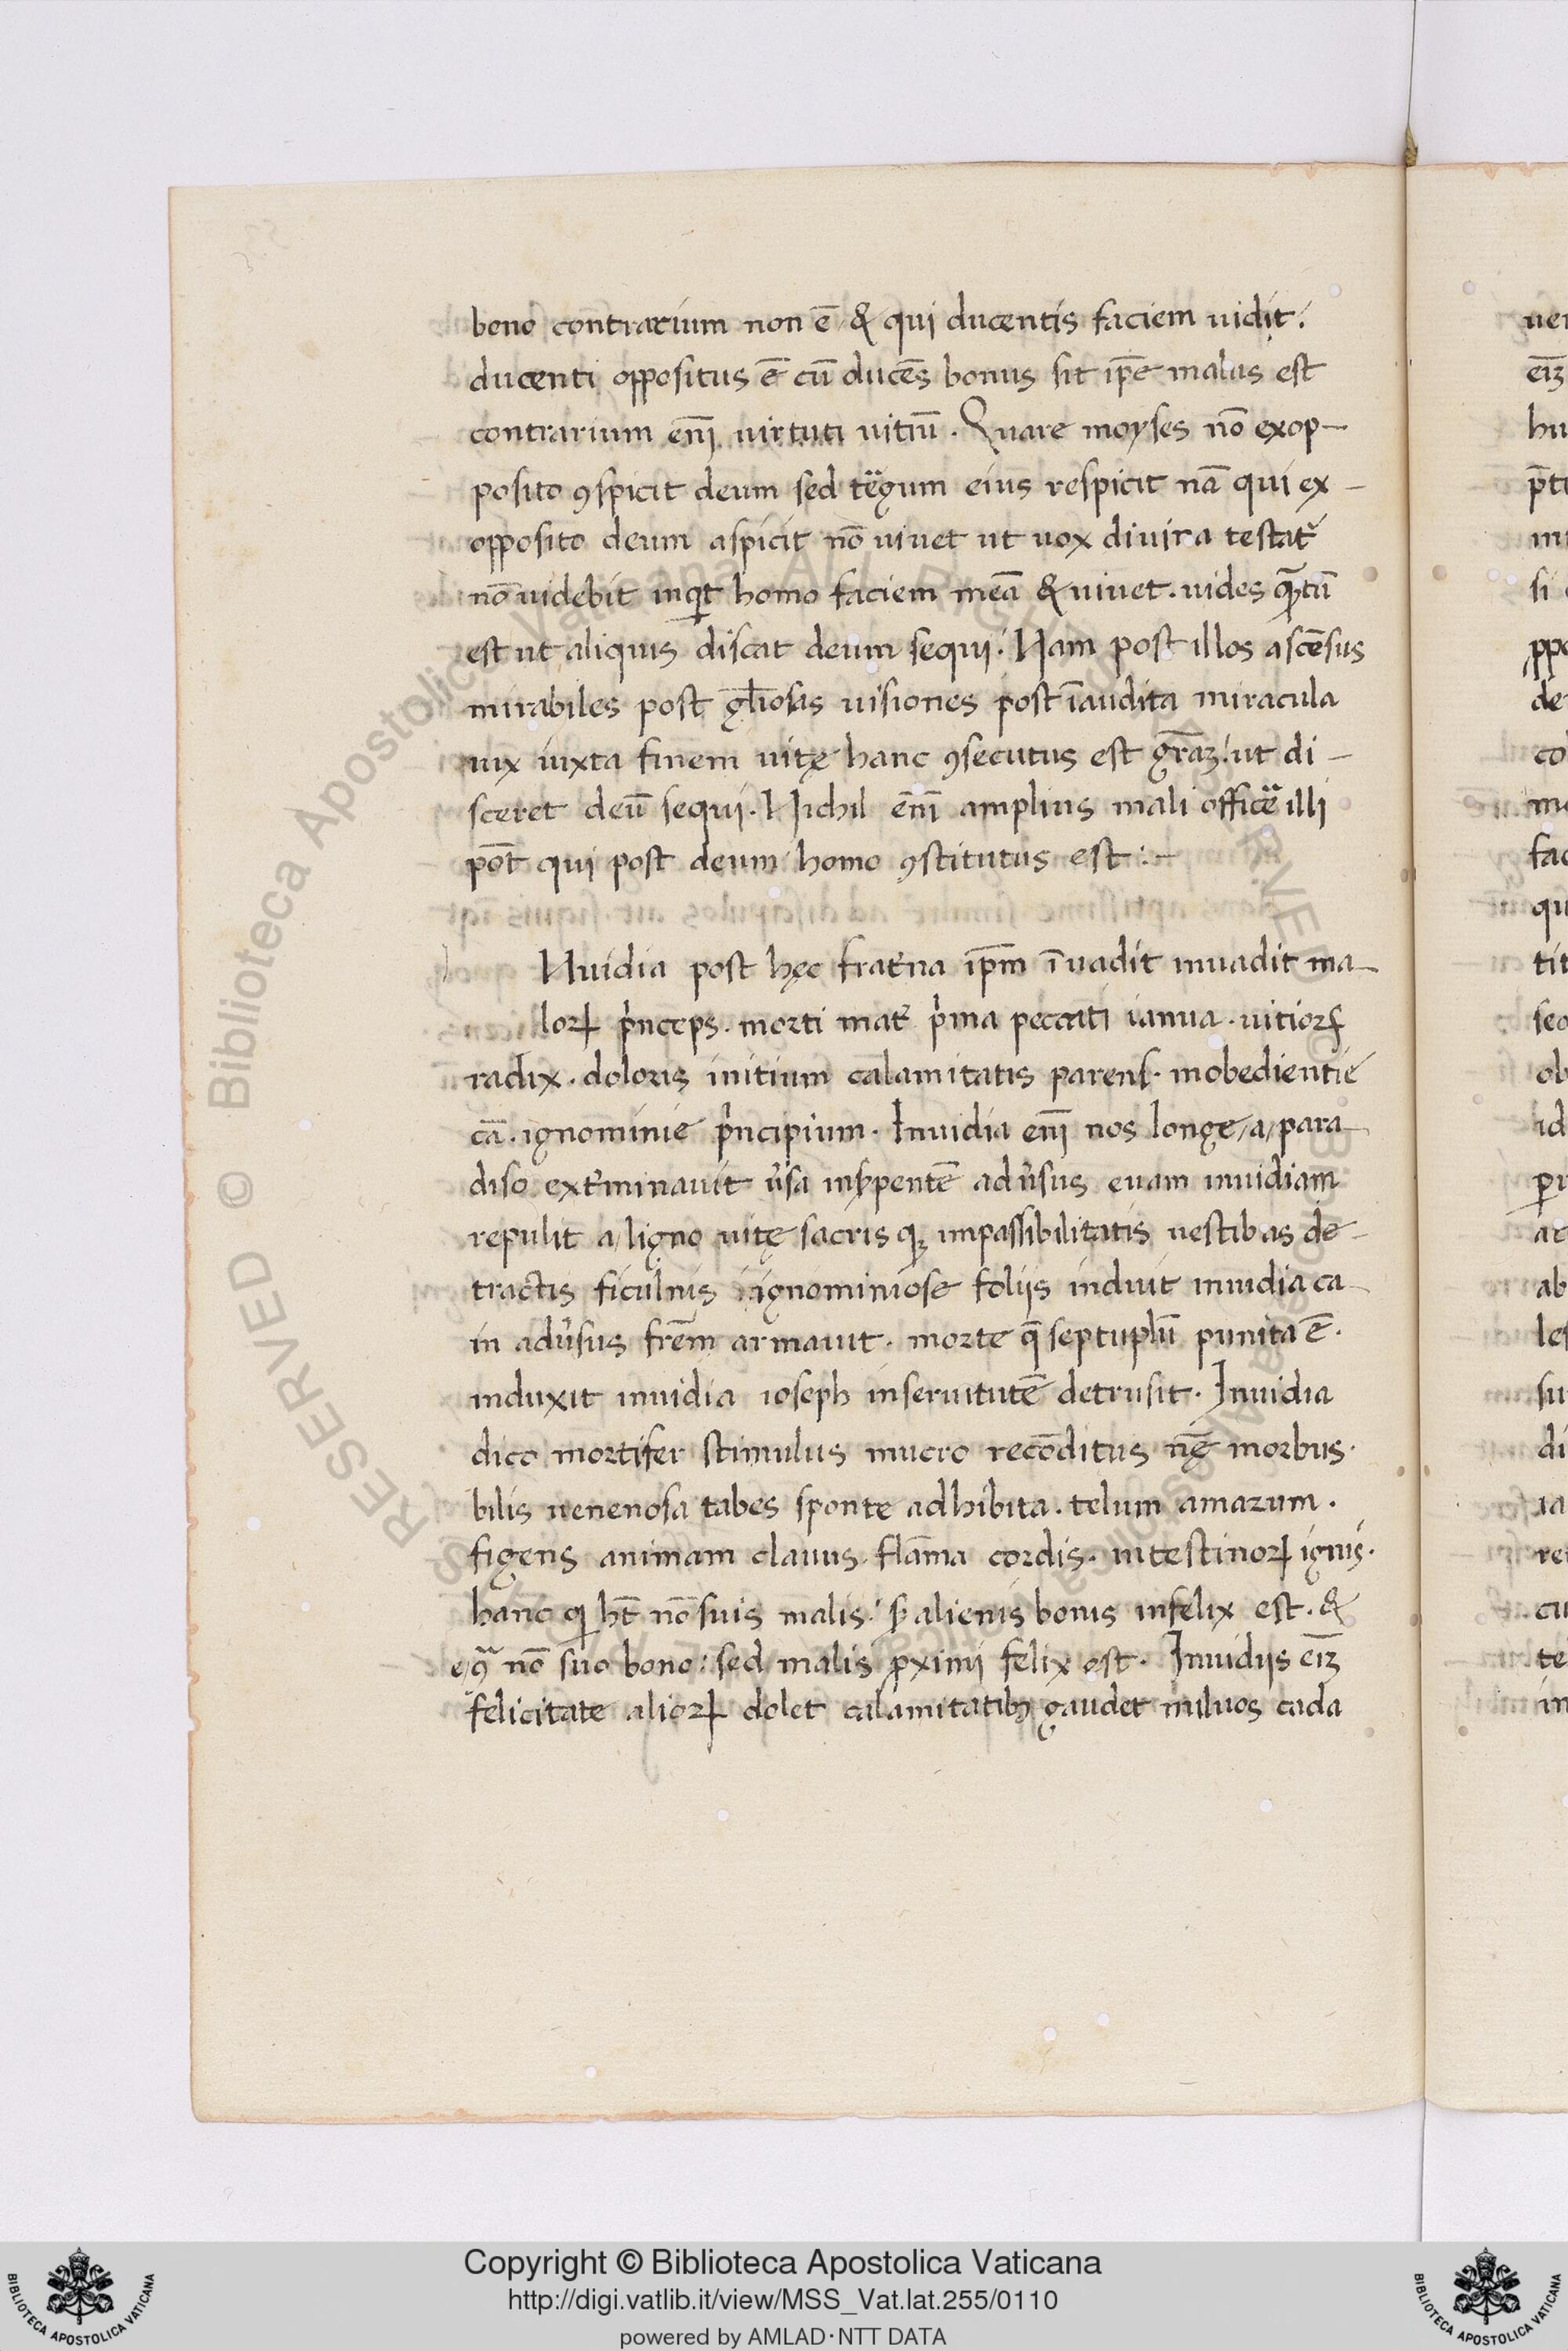 bono contrarium non ē & qui ducentis faciem uidit.
ducenti oppositus ē cū ducēs bonus sit ip̄e malus est
contrarium en̄i uirtuti uitiū. Quare moyses nō exop-
posito ꝯspicit deum sed tergum eius respicit nā qui ex-
opposito deum aspicit nō uiuet ut uox diuina testat᷑
nō uidebit inqt homo faciem meā & uiuet. uides qͣtū
est ut aliquis discat deum sequi. Nam post illos ascēsus
mirabiles post gl̄iosas uisiones post īaudita miracula
uix iuxta finem uitę hanc ꝯsecutus est gr̄aꝫ. ut di-
sceret deū sequi. Nichil en̄i amplius mali officere illi
pōt qui post deum homo ꝯstitutus est:-
Nuidia post hęc frat̓na ip̄m īuadit inuadit ma-
loꝝ pͥnceps. morti mat̓ pͥma peccati ianua. uitioꝝ
radix. doloris initium calamitatis parens. inobedientie
cā. ignominie pͥncipium. Inuidia en̄i nos longe/a/para-
diso ext̓minauit u̓sa inẜpentē adu̓sus euam inuidiam
repulit a/ligno uitę sacris qꝫ impassibilitatis uestibus de-
tractis ficulnis ignominiose foliis induit inuidia ca-
in adu̓sus fr̄em armauit. morte q̄ septuplū punita ē.
induxit inuidia ioseph inseruitutē detrusit. Inuidia
dico mortifer stimulus mucro recōditus nę̄ morbus.
bilis uenenosa tabes sponte adhibita. telum amarum.
figens animam clauus. flāma cordis. intestinoꝝ ignis.
hanc qͥ ht̄ nō suis malis. ẜ alienis bonis infelix est. &
eꝯͣ nō suo bono: sed malis ꝓximi felix est. Inuidiis eīꝫ
felicitate alioꝝ dolet calamitatibꝫ gaudet miluos cada
Copyright © Biblioteca Apostolica Vaticana
http://digi.vatlib.it/view/MSS_Vat.lat.255/0110
powered by AMLAD·NTT DATA